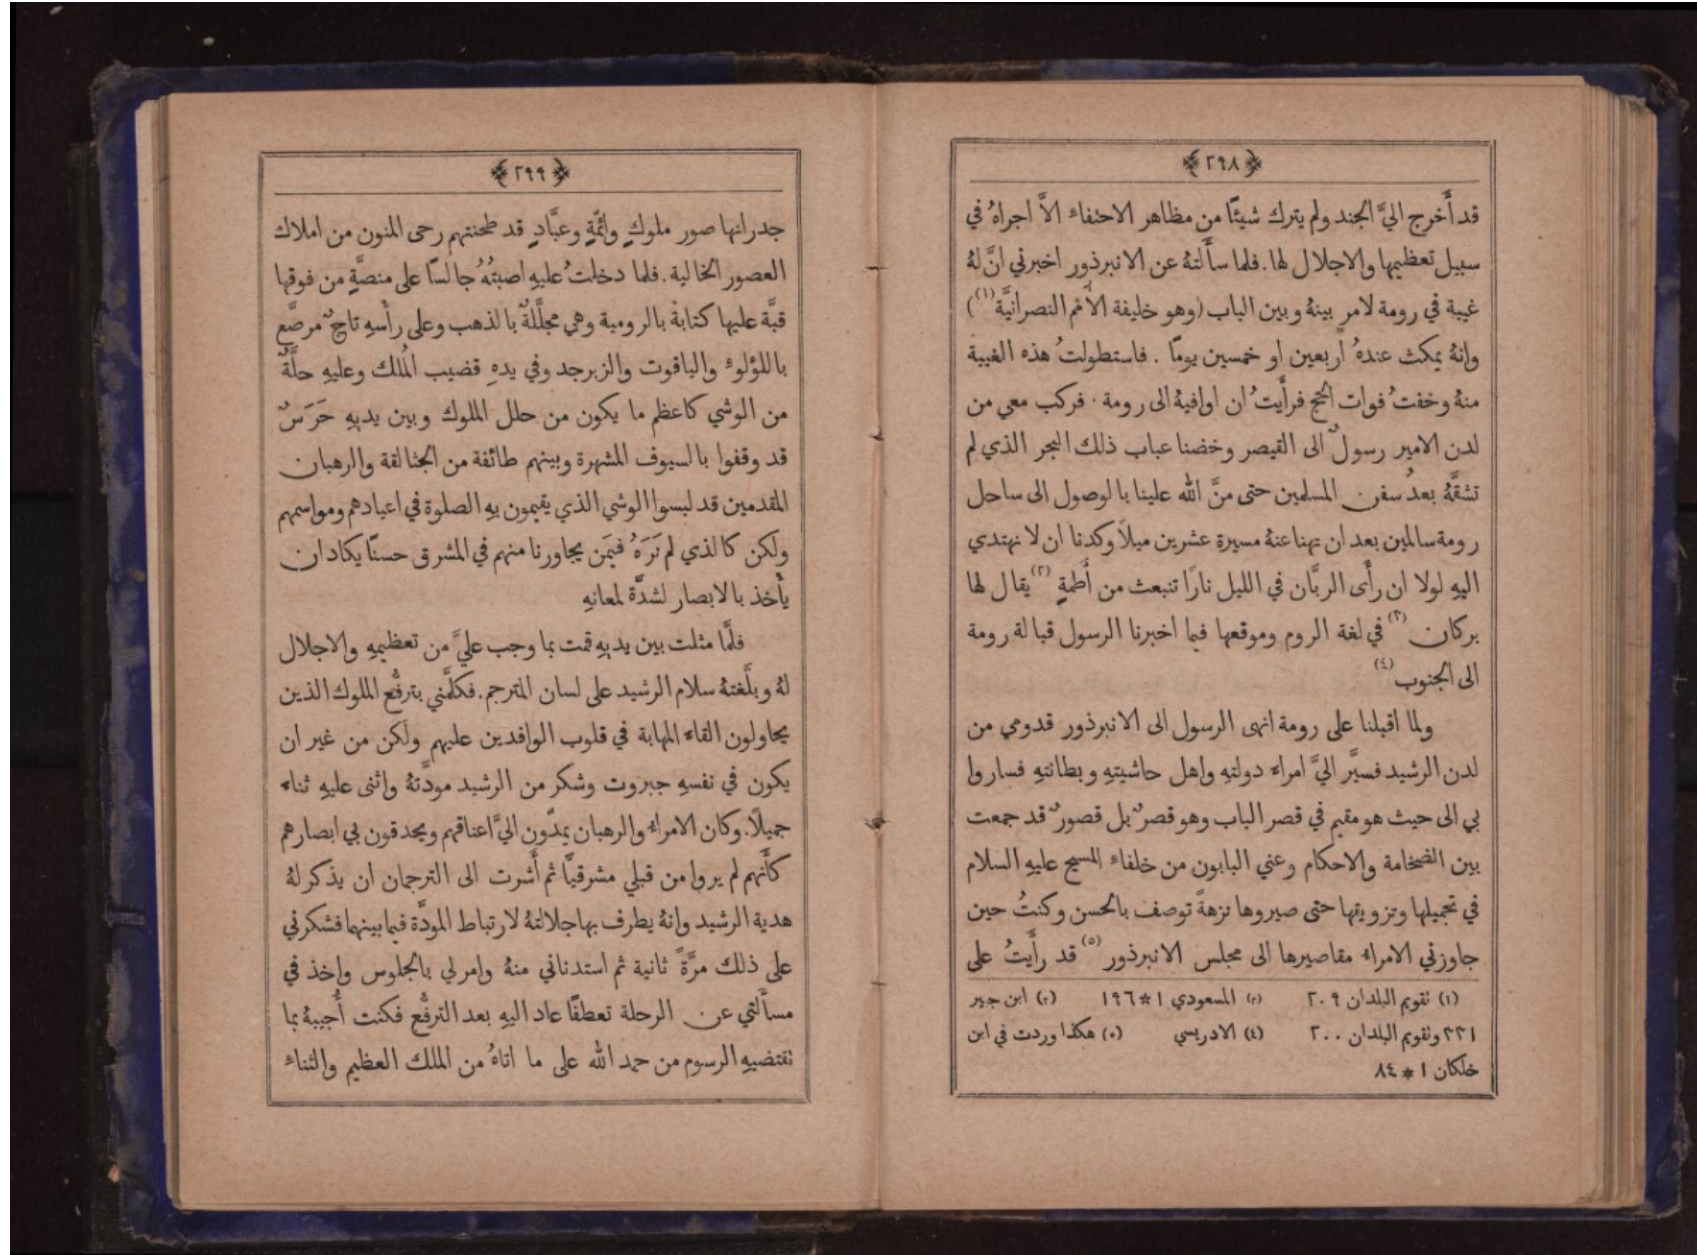 ﴿٢٩٨﴾
قد أَخرج اليَّ الجند ولم يترك شيئًا من مظاهر الاحتفاء الاَّ اجراهُ في
سبيل تعظيمها والاجلال لها. فلما سأَلتهُ عن الانبرذور اخبرني انَّ لهُ
غيبة في رومة لامرٍ بينهُ وبين الباب (وهو خليفة الأُمم النصرانيَّة(١))
وانهُ يمكث عندهُ أربعين او خمسين يومًا . فاستطولتُ هذه الغيبة
منهُ وخفتُ فوات الحج فرأَيتُ ان اوافيهُ الى رومة . فركب معي من
لدن الامير رسولٌ الى القيصر وخضنا عباب ذلك البحر الذي لم
تشقَّهُ بعدُ سفن المسلمين حتى منَّ الله علينا بالوصول الى ساحل
رومة سالمين بعد ان تهنا عنهُ مسيرة عشرين ميلاً وكدنا ان لا نهتدي
اليهِ لولا ان رأَى الربَّان في الليل نارًا تنبعث من أَطمةٍ (٢) يقال لها
بركان (٣) في لغة الروم وموقعها فيما اخبرنا الرسول قبالة رومة
الى الجنوب (٤)
ولما اقبلنا على رومة انهى الرسول الى الانبرذور قدومي من
لدن الرشيد فسيَّر اليَّ امراء دولتهِ واهل حاشيتهِ وبطانتهِ فساروا
بي الى حيث هو مقيم في قصر الباب وهو قصرٌ بل قصورٌ قد جمعت
بين الضخامة والاحكام وعني البابون من خلفاء المسيح عليهِ السلام
في تجميلها وتزويقها حتى صيروها نزهةً توصف بالحسن وكنتُ حين
جاوزني الامراء مقاصيرها الى مجلس الانبرذور (٥) قد رأَيتُ على
(١) تقويم البلدان ٢٠٩ (٢) المسعودي ١*١٩٦ (٣) ابن جبير
٣٣١ وتقويم البلدان ٢٠٠ (٤) الادريسي (٥) هكذا وردت في ابن
خلكان ١*٨٤
﴿٢٩٩﴾
جدرانها صور ملوكٍ وائمَّةٍ وعبَّادٍ قد طحنتهم رحى المنون من املاك
العصور الخالية . فلما دخلتُ عليهِ اصبتُهُ جالسًا على منصَّةٍ من فوقها
قبَّة عليها كتابةٌ بالرومية وهي مجلَّلةٌ بالذهب وعلى رأْسهِ تاجٌ مرصَّع
باللؤلوء والياقوت والزبرجد وفي يدهِ قضيب المُلك وعليهِ حلَّةٌ
من الوشي كاعظم ما يكون من حلل الملوك وبين يديهِ حَرَسٌ
قد وقفوا بالسيوف المشهرة وبينهم طائفة من الجثالقة والرهبان
المقدمين قد لبسوا الوشي الذي يقيمون بهِ الصلوة في اعيادهم ومواسمهم
ولكن كالذي لم نَرَهُ فيمَن يجاورنا منهم في المشرق حسنًا يكاد ان
يأْخذ بالابصار لشدَّة لمعانهِ
فلمَّا مثلت بين يديهِ قمت بما وجب عليَّ من تعظيمهِ والاجلال
لهُ وبلَّغتهُ سلام الرشيد على لسان المترجم. فكلَّمني بترفُّع الملوك الذين
يحاولون القاء المهابة في قلوب الوافدين عليهم ولكن من غير ان
يكون في نفسهِ جبروت وشكر من الرشيد مودَّتهُ واثنى عليهِ ثناء
جميلاً. وكان الامراء والرهبان يمدّون اليَّ اعناقهم ويحدقون بي ابصارهم
كأَنهم لم يروا من قبلي مشرقيًّا ثم أَشرت الى الترجمان ان يذكر لهُ
هدية الرشيد وانهُ يطرف بها جلالتهُ لارتباط المودَّة فيما بينهما فشكرني
على ذلك مرَّةً ثانية ثم استدناني منهُ وامر لي بالجلوس واخذ في
مسأَلتي عن الرحلة تعطفًا عاد اليهِ بعد الترفُّع فكنت أُجيبهُ بما
تقتضيهِ الرسوم من حمد الله على ما اتاهُ من الملك العظيم والثناء